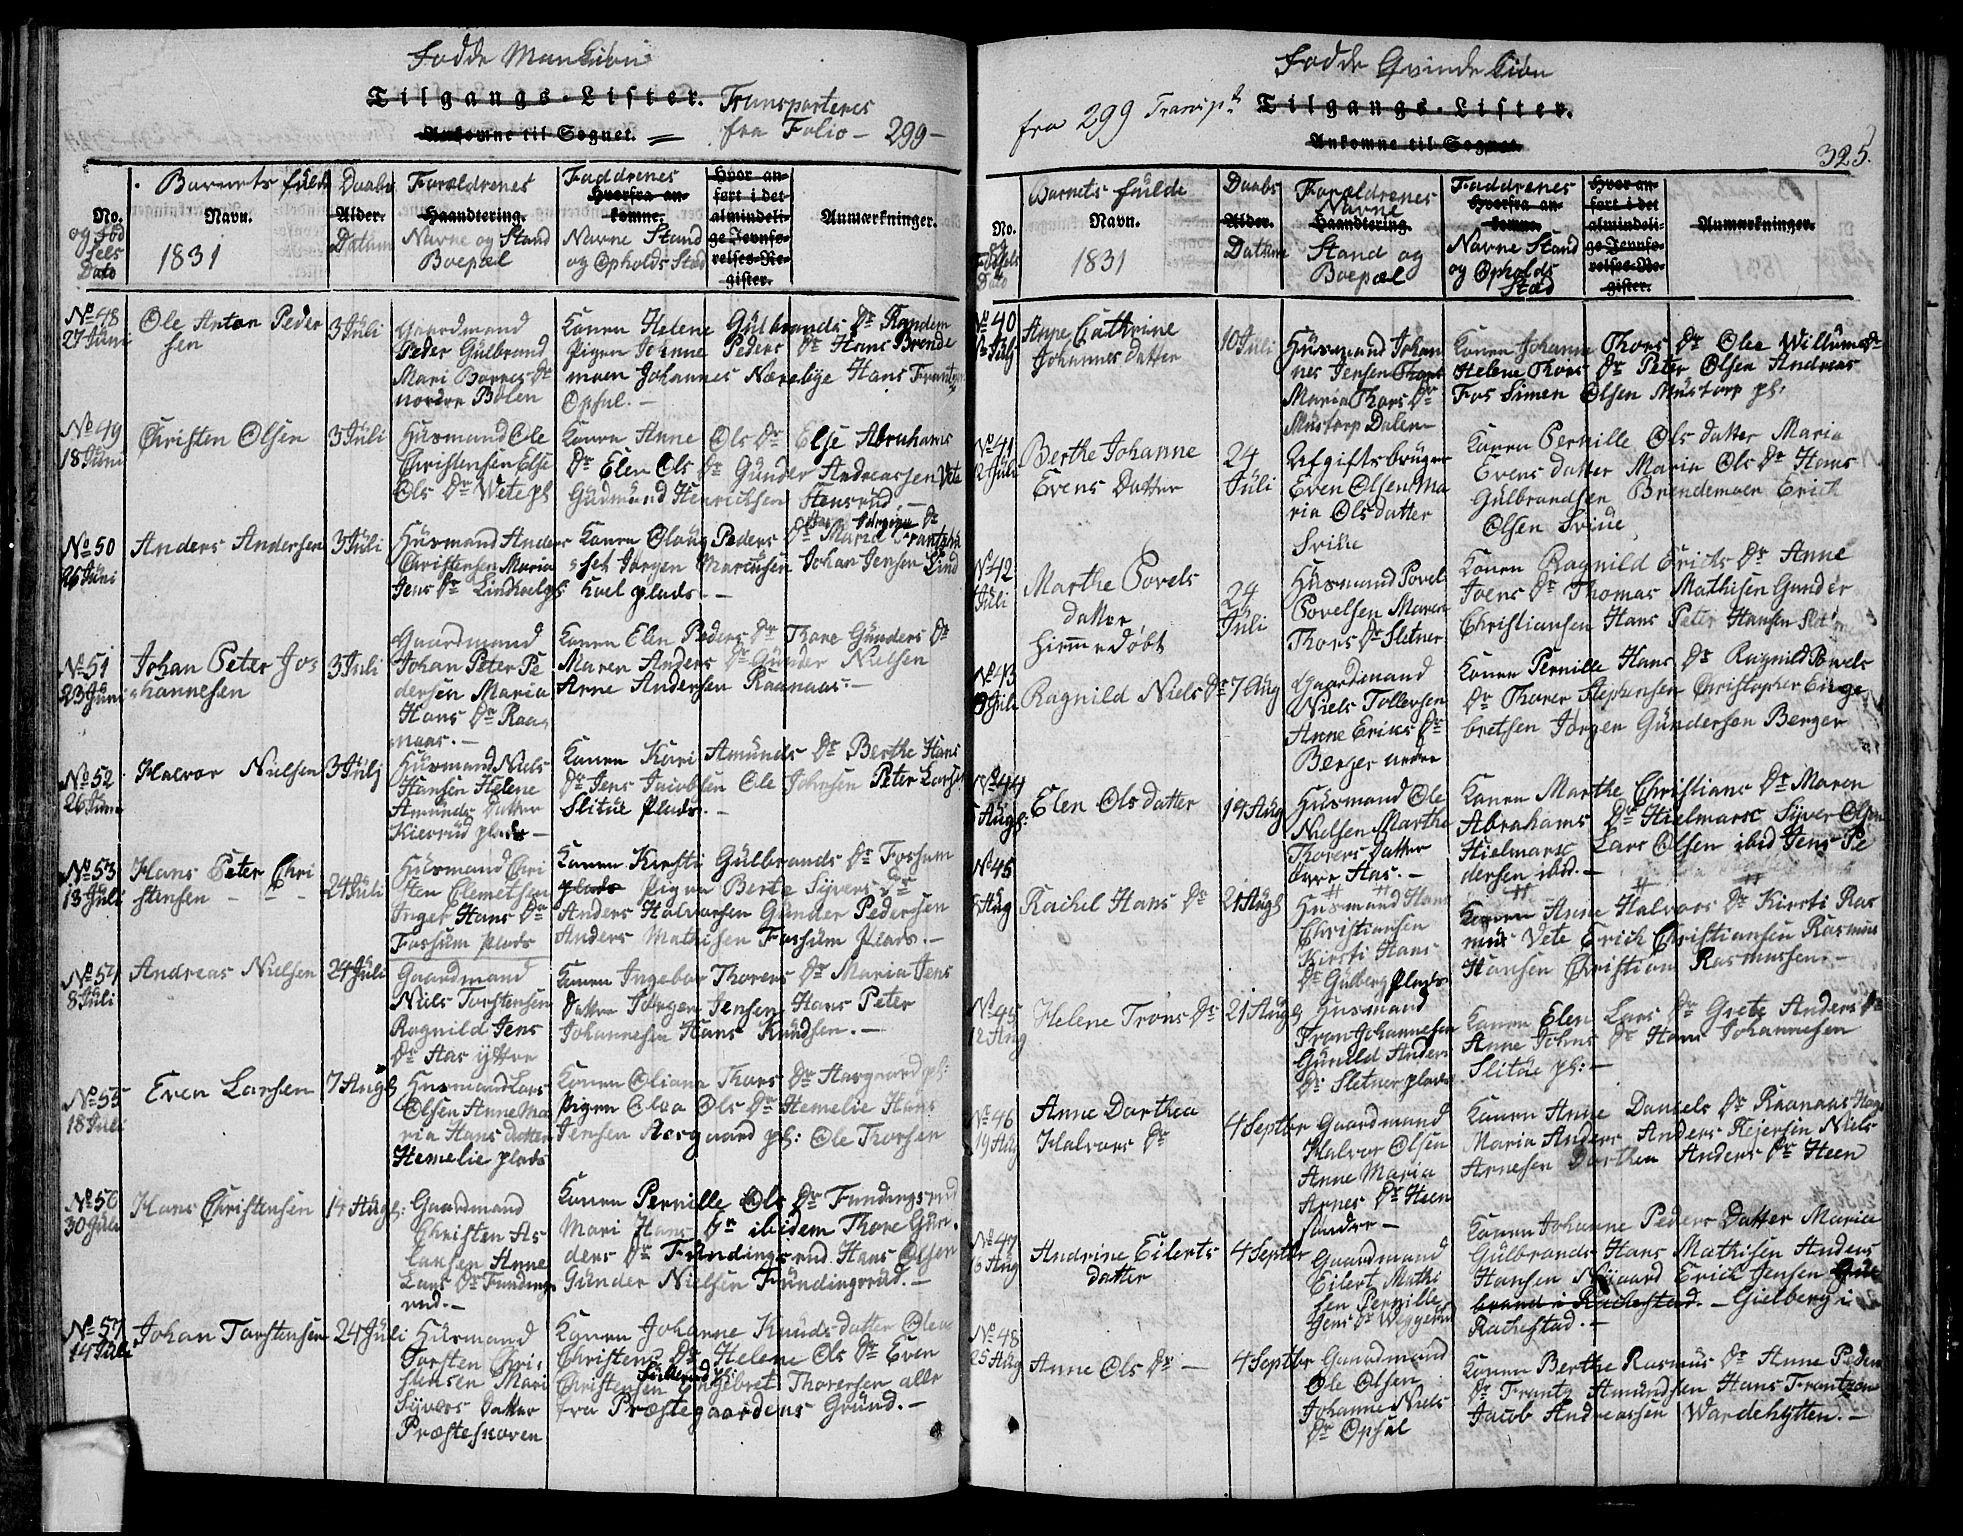 Fødde Mankiøn
Tilgangs-Lister. Transporteres
Ankomne til Sognet. = fra Folio - 299 -
No. og Fød sels Dato
Barnets fulde Navn. 1831
Daabs Alder. Datum
Forældrenes Haandtering. Navne og Stand Boepæl
Faddrenes Hvorfra ankomne. Navne Stand og Opholds Stæd
Hvor anført i det almindelige Jevnførelses-Register.
Anmærkninger.
No 48
27 Juni
Ole Anton Peder
sen
3 Juli
Gaardmand
Peder Gulbrand
Mari Borres Dr
nordre Bolen
Konen Helene Gulbrands Dr Randem
Pigen Johnne Peders Dr Hans Brende
moen Johannes Nærelige Hans Frantz
Opsal. -
No 49
18 Juni
Christen Olsen
3 Juli
Husmand Ole
Christensen Else
Ols Dr Wete pl
Konen Anne Ols Dr Else Abrahams
Dr Elen Ols Dr Gunder Andreassen Vete
Gudmund Henrichsen Stensrud. -
No 50
26 Juni
Anders Andersen
3 Juli
Husmand Anders
Christensen Maria
Jens Dr Lindholg
Konen Olaug Peders Dr Maria Frantz
Jørgen Marcusen Johan Jensen Lind
hoel plads. -
No 51
23 Juni
Johan Peter Jo-
hannesen
3 Juli
Gaardmand
Johan Peter Pe
dersen Maria
Hans Dr Raa-
naas. -
Konen Elen Peders Dr Thore Gunders Dr
Maren Anders Dr Gunder Nielsen
Arne Andersen Raanaas. -
No 52
26 Juni
Halvor Nielsen
3 Julj
Husmand Niels
Hansen Helene
Amunds Datter
Kierrud plads -
Konen Kari Amunds Dr Berthe Hans
Dr Jens Jacobsen Ole Johnsen Peter Larsen
Slitue Plads. -
No 53
13 Juli
Hans Peter Chri
stensen - - -
24 Juli
Husmand Chri
sten Clemetsen
Inger Hans Dr
Fossum plads
Konen Kirsti Gulbrands Dr Fossum
plads Pigen Berte Syvers Dr
Anders Halvorsen Gunder Pedersen
Anders Mathisen Fossum plads. -
No 54
8 Juli
Andreas Nielsen
24 Juli
Gaardmand
Niels Torstensen
Ragnild Jens
Dr Aas yttre
Konen Ingebor Thorers Dr Maria Jens
Datter Jørgen Jensen Hans Peter
Johannesen Hans Knudsen. -
No 55
18 Juli
Even Larsen
7 Aug
Husmand Lars
Olsen Anne Ma
ria Hans datter
Hemelie plads
Konen Oliana Thors Dr Aasgaard pl:
Pigen Olea Ols Dr Hemelie Hans
Jensen Aasgaard pl: Ole Thorsen
No 56
30 Juli
Hans Christensen
14 Aug:
Gaardmand
Christen As
laksen Anne
Lars Dr Fundings
rud. -
Konen Pernille Ols Dr Fundingsrud
Mari Hans Dr ibidem Thore Gun-
ders Dr Fundingsrud Hans Olsen
Gunder Nielsen Fundingsrud. -
No 57
14 Juli
Johan Torstensen
24 Juli
Husmand
Torsten Chri-
stensen Mari
Syvers Datter
Præsteskoven
Konen Johanne Knuds datter Olea
Christens Dr Helene Ols Dr Even
Christensen Engebret Thoresen alle
fra Præstegaardens Grund. -
Fødde Qvinde kiøn
fra 299 Transpt
Tilgangs-Lister.
Ankomne til Sognet.
325.
No. og Fødsels Dato
Barnets fulde Navn. 1831
Daabs Alder. Datum
Forældrenes Navne Haandtering. Stand og Boepæl
Faddrenes Hvorfra ankomne. Navne Stand og Opholds Stæd
Hvor anført i det almindelige Jevnførelses-Register.
Anmærkninger.
No 40
Julj
Anne Cathrine
Johannes datter
10 Juli
Husmand Johan
nes Jensen
Maria Thors Dr
Mustorp Dalen
Konen Johanne Thors Dr Olea Willums Dr
Helene Thors Dr Peter Olsen Andreas
Fos Simen Olsen Mustorp pl:
No 41
2 Juli
Berthe Johanne
Evens Datter
24
Juli
Afgiftsbruger
Even Olsen Ma
ria Olsdatter
Sriue
Konen Pernille Ols datter Maria
Evens datter Maria Ols Dr Hans
Gulbrandsen Brendemoen Erich
Olsen Sriue
No 42
Juli
Marthe Povels
datter
hiemmedøbt
24
Juli
Husmand Povel
Povelsen Maren
Thors Dr Sletner
Konen Ragnild Erichs Dr Anne
Joens Dr Thomas Mathisen Gunder
Christiansen Hans Peter Hansen
No 43
Juli
Ragnild Niels Dr
7 Aug
Gaardmand
Niels Tollefsen
Anne Erics Dr
Berger nedre
Konen Pernille Hans Dr Ragnild Povels
Dr Thorer Stephensen Christopher Enge
bretsen Jørgen Gundersen Berger
No 44
Aug:
Elen Ols datter
14 Aug
Husmand Ole
Nielsen Marthe
Thorers datter
øvre Aas. -
Konen Marthe Christians Dr Maren
Abrahams Dr Hielmarsc Syver Olsen
Hielmarsc Lars Olsen ibid Jens Pe
dersen ibd. -
No 45
8 Aug
Rachel Hans Dr
21 Aug
Husmand Hans
Christiansen
Kirsti Hans
Dr Gulberg plads
Konen Anne Halvors Dr Kirsti Ras
mus Vete Erich Christiansen Rasmus
Hansen Christian Rasmussen. -
No 45
12 Aug
Helene Trons Dr
21 Aug
Husmand
Tron Johannesen
Gunild Anders
Dr Sletner plads
Konen Elen Lars Dr Grete Anders Dr
Anne Johns Dr Hans Johannesen
Slitue pl: -
No 46
19 Aug
Anne Dorthea
Halvors Dr
4 Septbr
Gaardmand
Halvor Olsen
Anne Maria
Arnes Dr Heen
søndre -
Konen Anne Daniels Dr Raanaas
Maria Anders Anders Rejersen Niels
Arnesen Dorthea Anders Dr Heen
No 47
6 Aug
Andrine Eilerts
datter
4 Septbr
Gaardmand
Eilert Mathi
sen Pernille
Jens Dr
Konen Johanne Peders Datter Maria
Gulbrands Hans Mathisen Anders
Hansen Nygaard Erich Jensen
brand i Rachestad. - Gielberg i
Rachestad. -
No 48
25 Aug
Anne Ols Dr -
4 Septbr
Gaardmand
Ole Olsen
Johanne Niels
Dr Opsal
Konen Berthe Rasmus Dr Anne Peders
Dr Frantz Amundsen Hans Frantzen
Jacob Andreassen Wardehytten. -